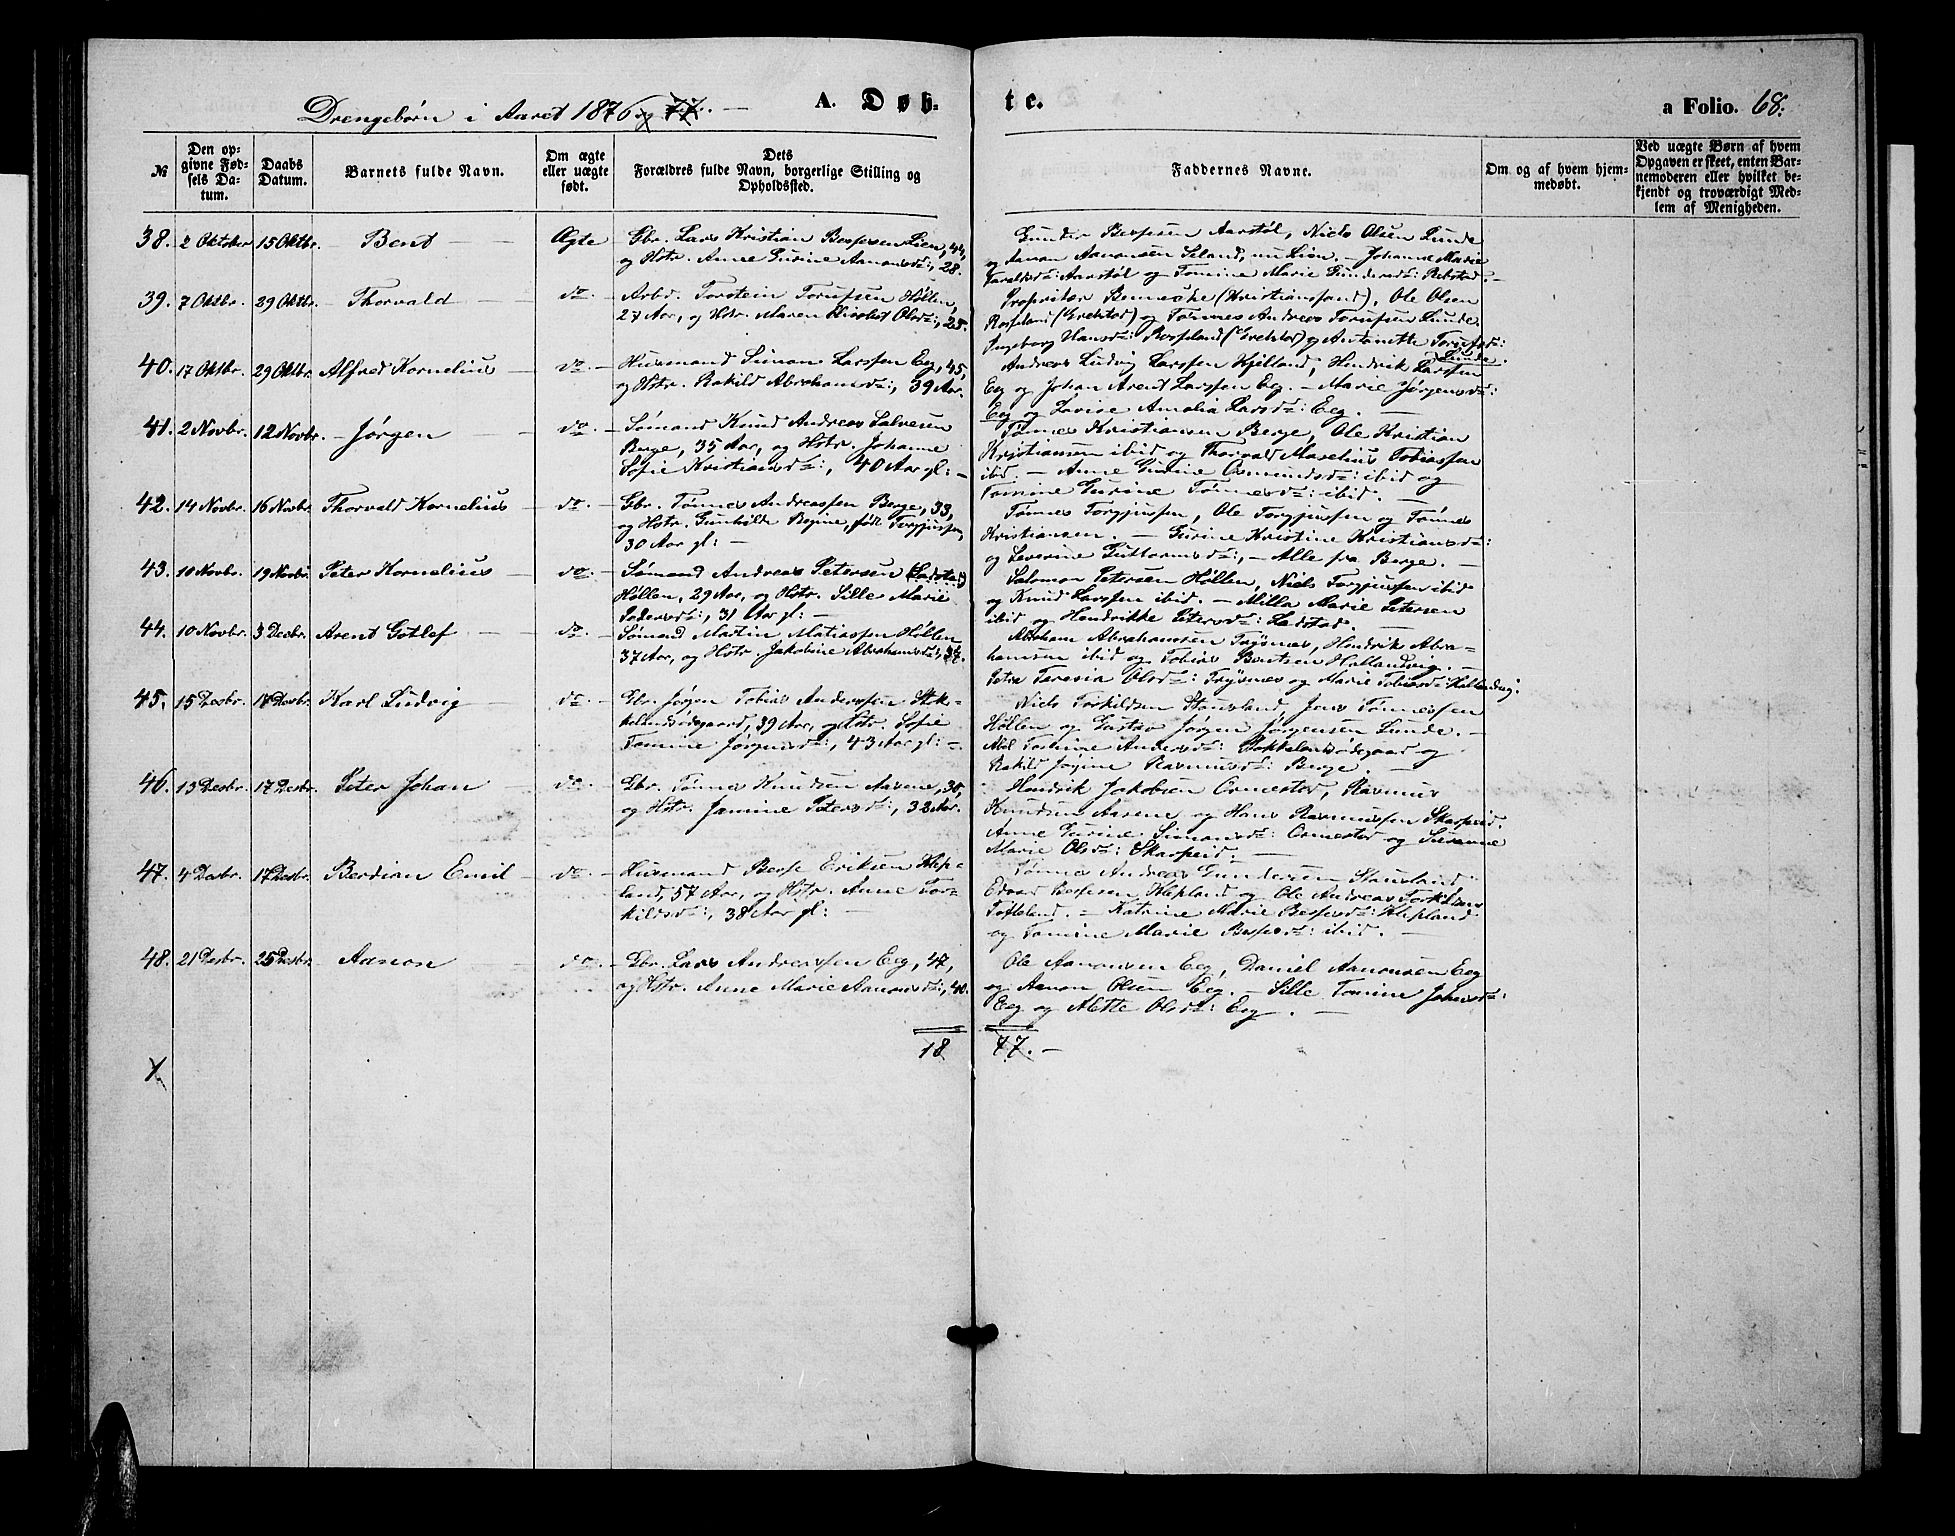 Drengebørn i Aaret 1876 og 77. —
A. Døb-
te.
a Folio. 68.
№
Den op-
givne Fød-
sels Da-
tum.
Daabs
Datum.
Barnets fulde Navn.
Om ægte
eller uægte
født.
Dets
Forældres fulde Navn, borgerlige Stilling og
Opholdssted.
Faddernes Navne.
Om og af hvem hjem-
medøbt.
Ved uægte Børn af hvem
Opgaven er skeet, enten Bar-
nemoderen eller hvilket be-
kjendt og troværdigt Med-
lem af Menigheden.
38. 2 Oktober 15 Oktbr. Bent — Ægte
Gbr. Lars Kristian Bespesen Lien, 44,
og Hstr. Anne Gurine Aanonsd:, 28.
Gunder Bespesen Aarstøl, Niels Olsen Lunde
og Aanon Aanonsen Island, nu Lien. — Johanne Marie
Taraldsd: Aarstøl og Tomine Marie Gundersd: Rebstad. —
39. 7 Oktbr. 29 Oktbr. Thorvald — do. —
Arbd. Torstein Torufsen Høllen,
27 Aar, og Hstr. Maren Olsd:, 25.
Propritær Benneche (Kristianssand), Ole Olsen
Rospeland (Grebstad) og Tønnes Andreas Torufsen Lunde.
Ingeborg Hansd: Rospeland (Grebstad) og Antonette Torufsd:
Lunde.
40. 17 Oktbr. 29 Oktbr. Alfred Kornelius — do. —
Husmand Simon Larssen Eeg, 45,
og Hstr. Rakild Abrahamsd:, 39 Aar.
Andreas Ludvig Larssen Hjelland, Hendrik Larssen
Eeg og Johan Arent Larssen Eeg. — Marie Jørgensd:
Eeg og Lovise Amalia Larsd: Eeg. —
41. 2 Novbr. 12 Novbr. — Jørgen — do. —
Sømand Knud Andreas Salvesen
Berge, 35 Aar, og Hstr. Johanne
Sofie Kristiansd:, 40 Aar gl: —
Tønnes Kristiansen Berge, Ole Kristian
Kristiansen ibid og Thorvald Marelius Tobiassen
ibid — Anne Gurine Osmundsd: ibid og
Tomine Gurine Tønnesd: ibid. —
42. 14 Novbr. 16 Novbr. Thorvald Kornelius — do. —
Gbr. Tønnes Andreassen Berge, 33,
og Hstr. Gunhilde Regine, født Torgjussen,
30 Aar gl: —
Tønnes Torgjussen, Ole Torgjussen og Tønnes
Kristiansen. — Gurine Kristine Kristiansd:
og Severine Guttormsd:, — Alle fra Berge. —
43. 10 Novbr. 19 Novbr. Peter Kornelius — do. —
Sømand Andreas Petersen (Ladstad)
Høllen, 29 Aar, og Hstr. Sille Marie
Pedersd:, 31 Aar gl: —
Salomon Petersen Høllen, Niels Torgjussen ibid
og Knud Larssen ibid. — Milla Marie Petersen
ibid og Hendrikke Petersd: Ladstad. —
44. 10 Novbr. 3 Decbr. Arent Gotlef — do. —
Sømand Martin Matiassen Høllen
37 Aar, og Hstr. Jakobine Abrahamsd:, 37.
Abraham Abrahamsen Trysnes, Hendrik Abra-
hamsen ibid og Tobias Bentsen Hallandvig. —
Petra Teresia Olsd: Trysnes og Marie Tobiasd: Hallandvig.
45. 15 Desbr. 17 Desbr. Karl Ludvig — do. —
Gbr. Jørgen Tobias Anderssen Stok-
kelandsødegaard, 39 Aar, og Hstr. Sofie
Tomine Jørgensd:, 43 Aar gl: —
Niels Torkildsen Stausland, Jens Tønnessen
Høllen og Gustav Jørgen Jørgensen Lunde. —
Tomine Andersd: Stokkelandsødegaard og
Rakild Jørgine Rasmusd: Berge. —
46. 13 Desbr. 17 Desbr. Peter Johan — do. —
Gbr. Tønnes Knudsen Aasene, 30,
og Hstr. Jamine Petersd:, 32 Aar.
Hendrik Jakobsen Ormestad, Rasmus
Knudsen Aasene og Hans Rasmussen Skarpeid.
Anne Gurine Simonsd: Ormestad og Susanne
Marie Olsd: Skarpeid. —
47. 4 Desbr. 17 Desbr. Berdian Emil — do. —
Husmand Berse Eriksen Klep-
land, 57 Aar, og Hstr. Anne Tor-
kildsd:, 38 Aar gl: —
Tønnes Andreas Gundersen Stausland
Edvard Bespesen Klepland og Ole Andreas Torkildsen
Toftsland. — Katrine Marie Bespesd: Klepland
og Tomine Marie Bespesd: ibid. —
48. 21 Desbr. 25 Desbr. Aanon — do. —
Gbr. Lars Andreassen Eeg, 47,
og Hstr. Anne Marie Aanonsd:, 40.
Ole Aanonsen Eeg, Daniel Aanonsen Eeg
og Aanon Olsen Eeg. — Sille Tomine Johnsd:
Eeg og Mette Olsd: Eeg. —
18 77. —